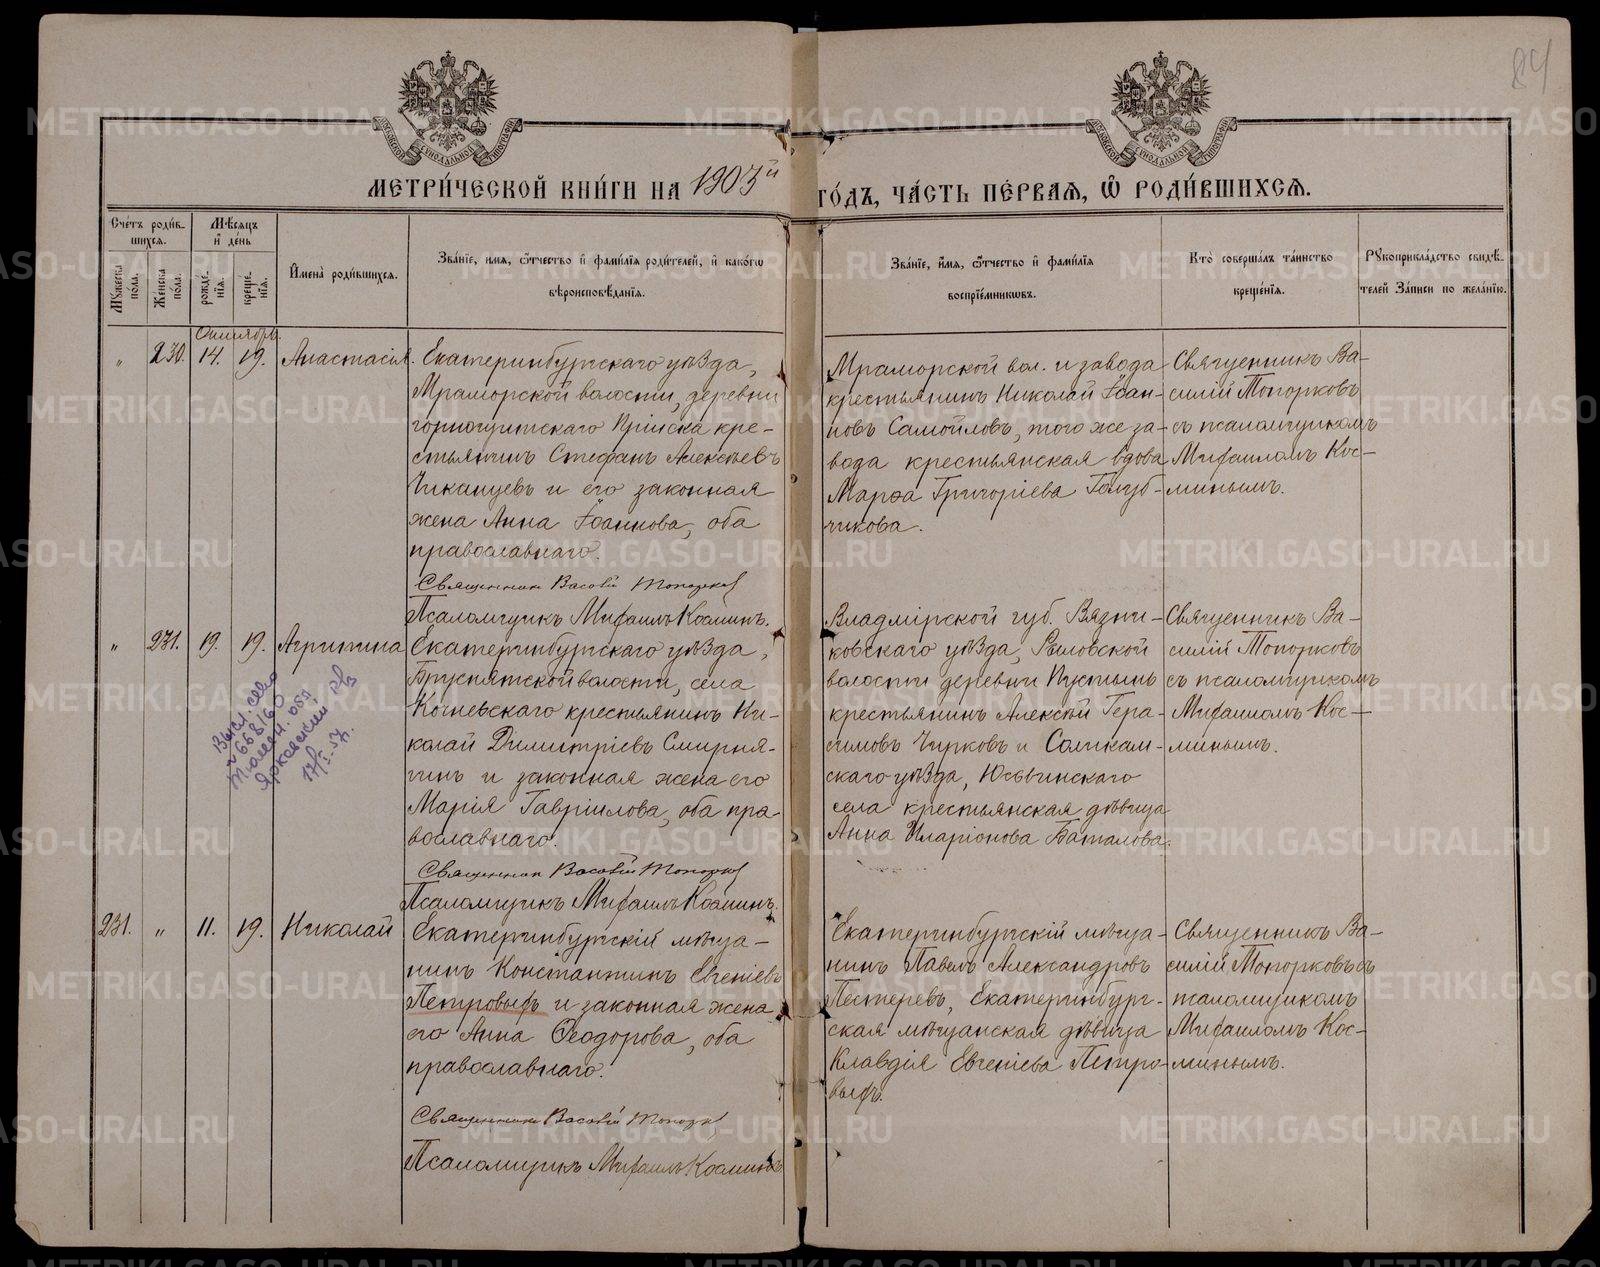 84
МЕТРИ́ЧЕСКОЙ КНИ́ГИ НА 1903й ГО́ДЪ, ЧА́СТЬ ПЕ́РВАЯ, Ѡ РОДИ́ВШИХСѦ.
Сче́тъ роди́в-
шихся.
Мѣ́сяцъ
и де́нь
Мꙋ́жеска
по́ла.
Же́нска
по́ла.
рожде́-
нїя.
креще́-
нїя.
И҆мена̀ роди́вшихся.
Зва́нїе, и́мя, ѻ҆́тчество и҆ фами́лїя роди́телей, и҆ како́гѡ
вѣроисповѣ́данїя.
Зва́нїе, и́мя, ѻ҆́тчество и҆ фами́лїя
воспрїе́мникѡвъ.
Кто̀ соверша́лъ та́инство
креще́нїя.
Рꙋкоприкла́дство свидѣ́-
телей За́писи по жела́нїю.
Октябрь.
" 230. 14. 19. Анастасія.
Екатеринбургскаго уѣзда,
Мраморской волости, деревни
горнощитскаго Пріиска кре-
стьянинъ Стефанъ Алексѣевъ
Чиканцевъ и его законная
жена Анна Іоаннова, оба
православнаго.
Священник Васолій Топорков
Псаломщикъ Михаилъ Косминъ.
Мраморской вол. и завода
крестьянинъ Николай Іоан-
новъ Самойловъ, того же за-
вода крестьянская вдова
Марѳа Григоріева Голуб-
чикова.
Священникъ Ва-
силій Топорковъ
съ псаломщикомъ
Михаиломъ Кос-
минымъ.
" 231. 19. 19. Агрипина
Екатеринбургскаго уѣзда,
Бруснятской волости, села
Кочневскаго крестьянинъ Ни-
колай Димитріевъ Смирня-
гинъ и законная жена его
Марія Гавріилова, оба пра-
вославнаго.
Священник Васолій Топорков
Псаломщикъ Михаилъ Косминъ.
Владмірской губ. Вязни-
ковскаго уѣзда, Рыловской
волости деревни Пустынь
крестьянинъ Алексѣй Гера-
симовъ Чирковъ и Соликам-
скаго уѣзда, Юсьвинскаго
села крестьянская дѣвица
Анна Иларіонова Баталова.
Священникъ Ва-
силій Топорковъ
съ псаломщикомъ
Михаиломъ Кос-
минымъ.
231. " 11. 19. Николай
Екатеринбургскій мѣща-
нинъ Константинъ Евгеніевъ
Петровыхъ и законная жена
его Анна Ѳеодорова, оба
православнаго.
Священник Васолій Топорков
Псаломщикъ Михаилъ Косминъ
Екатеринбургскій мѣща-
нинъ Павелъ Александровъ
Пестеревъ, Екатеринбург-
ская мѣщанская дѣвица
Клавдія Евгеніева Петро-
выхъ.
Священникъ Ва-
силій Топорковъ съ
псаломщикомъ
Михаиломъ Кос-
минымъ.
METRIKI.GASO-URAL.RU